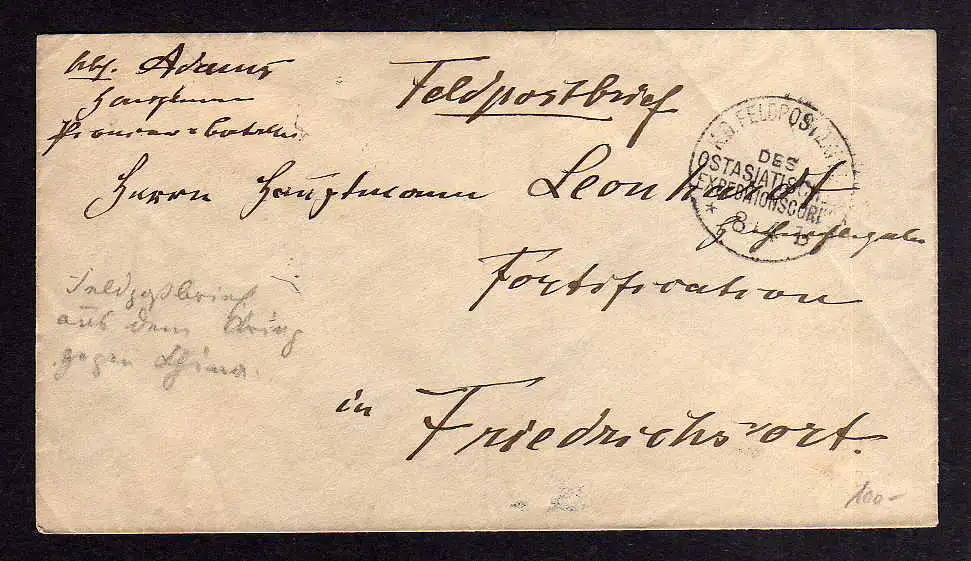 Abs. Adams
Hauptmann
Pionier-Bataillon
Feldpostbrief
K.D. FELDPOSTEXP
DES
OSTASIATISCHEN
EXPEDITIONSCORPS
Herrn Hauptmann Leonhardt
Fortification
in Friedrichsort.
Feldpostbrief
aus dem Krieg
gegen China.
100-